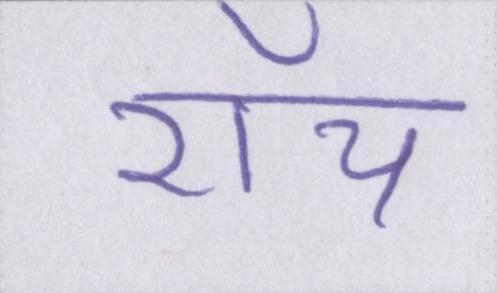 रॉय